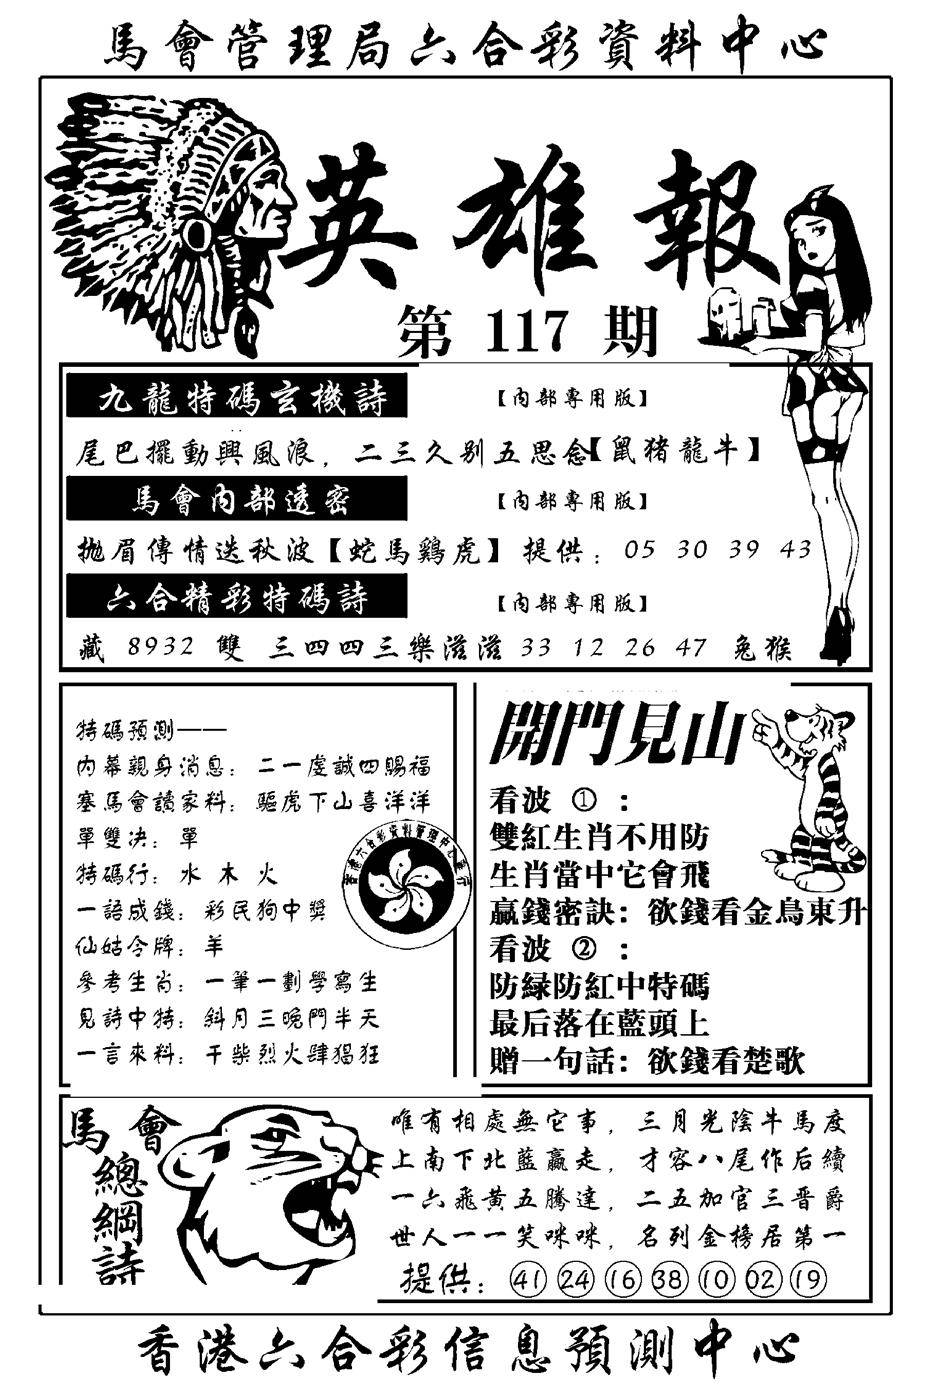 馬會管理局六合彩資料中心
英雄報
第 117 期
九龍特碼玄機詩 【内部專用版】
尾巴擺動興風浪，二三久别五思念【鼠猪龍牛】
馬會内部透密 【内部專用版】
抛眉傳情送秋波【蛇馬鷄虎】 提供：05 30 39 43
六合精彩特碼詩 【内部專用版】
藏 8932 雙 三四四三樂滋滋 33 12 26 47 兔猴
特碼預測——
内幕親身消息：二一虔誠四賜福
塞馬會讀家料：驅虎下山喜洋洋
單雙决：單
特碼行：水 木 火
一語成錢：彩民狗中獎
仙姑令牌：羊
參考生肖：一筆一劃學寫生
見詩中特：斜月三晚門半天
一言來料：干柴烈火肆猖狂
香港六合彩資料管理中心發行
開門見山
看波 ①：
雙紅生肖不用防
生肖當中它會飛
贏錢密訣：欲錢看金烏東升
看波 ②：
防緑防紅中特碼
最后落在藍頭上
贈一句話：欲錢看楚歌
馬會
總綱詩
唯有相處無它事，三月光陰牛馬度
上南下北藍贏走，才容八尾作后續
一六飛黄五騰達，二五加官三晋爵
世人一一笑咪咪，名列金榜居第一
提供：㊶ ㉔ ⑯ ㊳ ⑩ 02 ⑲
香港六合彩信息預測中心